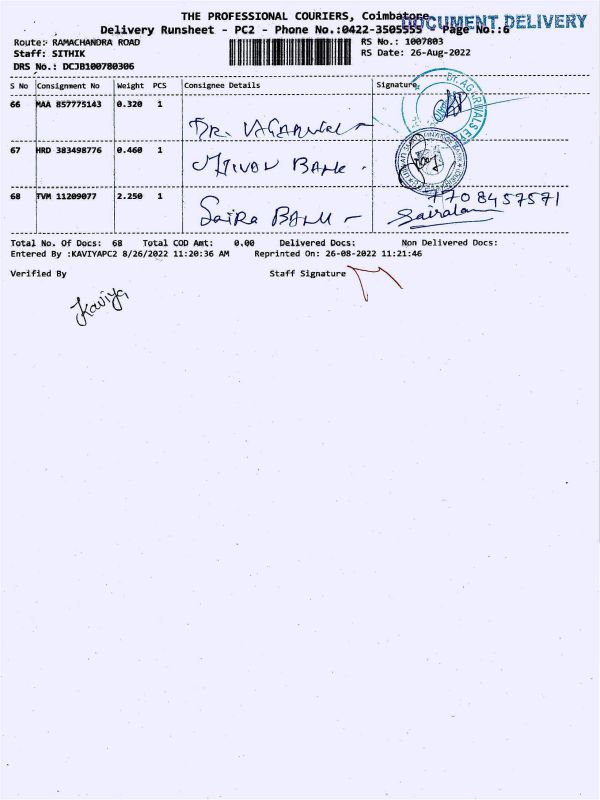 THE PROFESSIONAL COURIERS, Coimbatore
DOCUMENT DELIVERY
Delivery Runsheet - PC2 - Phone No.:0422-3505555 Page No.:6
Route: RAMACHANDRA ROAD
RS No.: 1007803
Staff: SITHIK
RS Date: 26-Aug-2022
DRS No.: DCJB100780306
S No Consignment No Weight PCS Consignee Details Signature
66 MAA 857775143 0.320 1
DR. AGARWAL
67 HRD 383498776 0.460 1
BANK
68 TVM 11209077 2.250 1
7708457571
Sairalam
Total No. Of Docs: 68 Total COD Amt: 0.00 Delivered Docs: Non Delivered Docs:
Entered By :KAVIYAPC2 8/26/2022 11:20:36 AM Reprinted On: 26-08-2022 11:21:46
Verified By Staff Signature
Kaviya